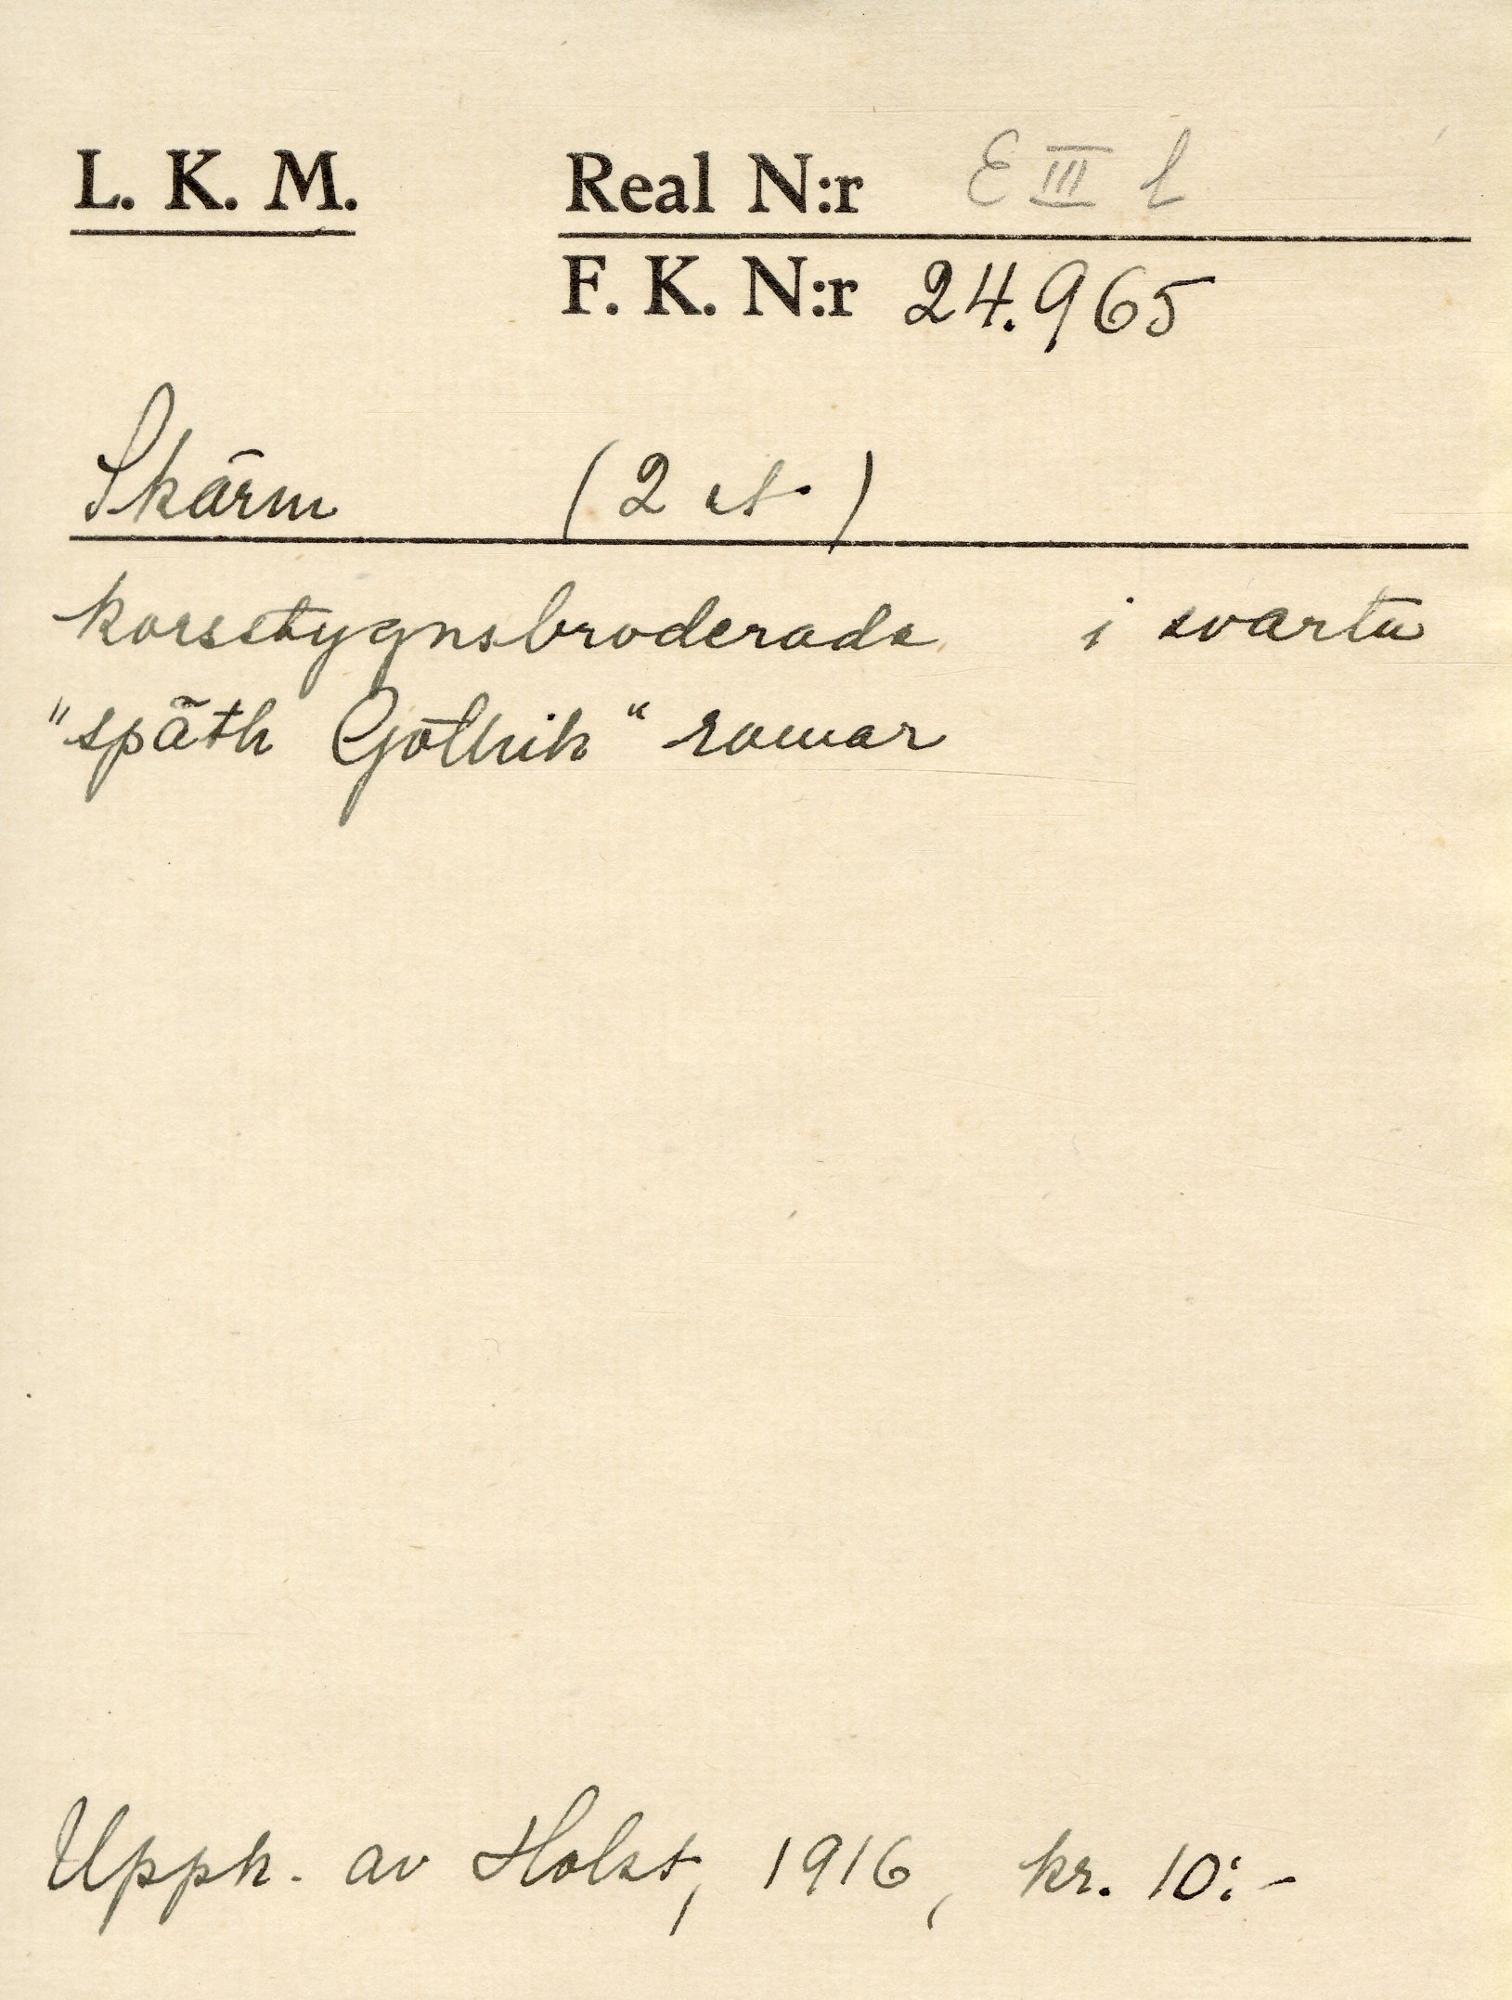 L. K. M.
Real N:r E III l
F. K. N:r 24.965
Skärm (2 st.)
korsstygnsbroderade i svarta
"späth Gothik" ramar
Uppk. av Holst, 1916, kr. 10:-